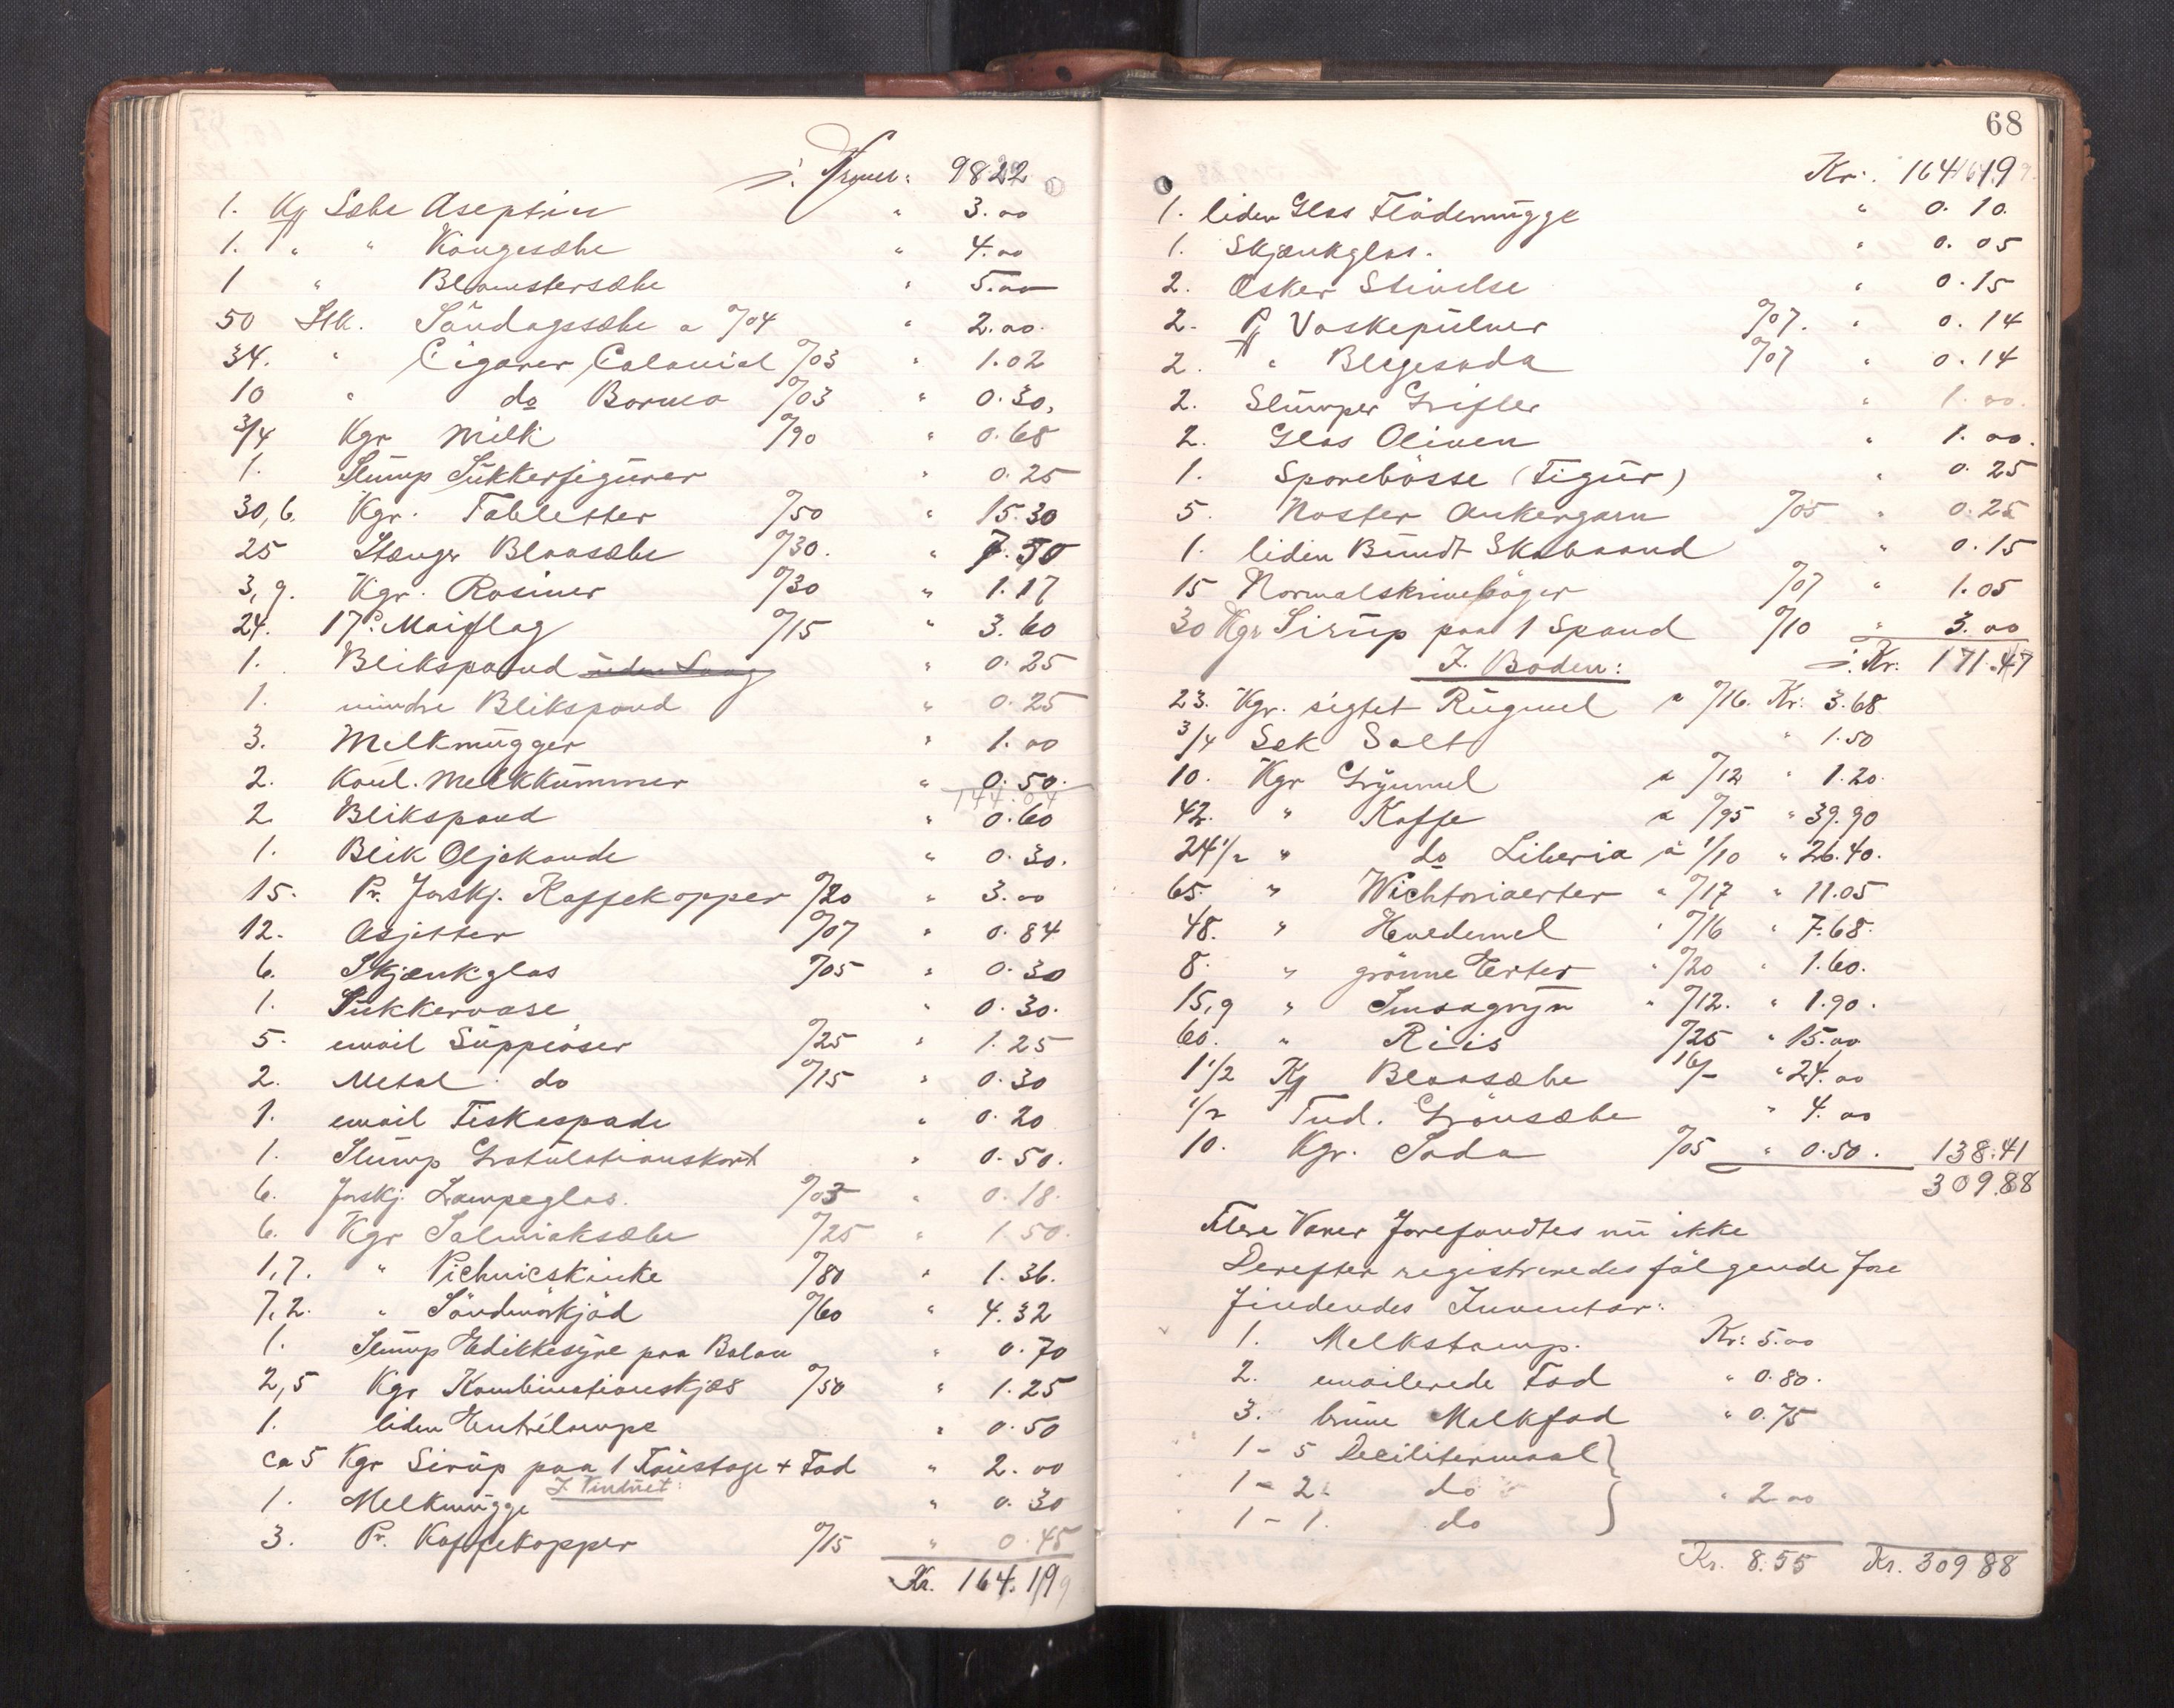 Kroner: 98.22
1. Ks Sæbe Aseptin " 3.00
1. " " Kongesæbe " 4.00
1 " Blomstersæbe " 5.00
50 Stk. Söndagssæbe a 0/04 " 2.00
34. " Cigarer, Colonial 0/03 " 1.02
10 " do Borneo 0/03 " 0.30.
3/4 Kgr Milk 0/90 " 0.68
1. Slump Sukkerfigurer " 0.25
30,6 Kgr. Tabletter 0/50 " 15.30
25 Stænger Blaasæbe 0/30. " 7.50
3,9. Kgr. Rosiner 0/30 " 1.17
24. 17de Maiflag 0/15 " 3.60
1. Blikspand uden Laag " 0.25
1. mindre Blikspand " 0.25
3. Melkmugger " 1.00
2. Koul. Melkkummer " 0.50.
144.04
2. Blikspand " 0.60
1. Blik Oljekande " 0.30.
15. Pr. forskj. Kaffekopper 0/20 " 3.00
12. Asjetter 0/07 " 0.84
6. Skjænkglas 0/05 " 0.30
1. Sukkervase " 0.30.
5. email Suppeöser 0/25 " 1.25
2. Metal do 0/15 " 0.30
1. email Fiskespade " 0.20
1. Slump Gratulationskort " 0.50.
6. forskj. Lampeglas. 0/03 " 0.18.
6. Kgr Salmiaksæbe 0/25 " 1.50.
1,7. " Pichnicskinke 0/80 " 1.36.
7,2. " Söndmörkjöd 0/60 " 4.32
1. Slump Edikkesyre paa Balon " 0.70
2,5 Kgr Kombinationskjæs 0/50 " 1.25
1. liden Entrélampe " 0.50
ca 5 Kgr Sirup paa 1 Faustage + Fad " 2.00
I Vinduet:
1. Melkmugge " 0.30
3. Pr. Kaffekopper 0/15 " 0.45
Kr. 164.19
68
Kr. 164.19
1. liden Glas Flödemugge " 0.10.
1. Skjænkglas. " 0.05
2. Æsker Stivelse " 0.15
2. Pk Vaskepulver 0/07. " 0.14
2. " Blegesoda 0/07 " 0.14
2. Slumper Grifler " 1.00.
2. Glas Oliven " 1.00.
1. Sparebösse (Figur) " 0.25
5. Nöster Ankergarn 0/05 " 0.25
1. liden Bundt Skobaand " 0.15
15 Normalskrivebøger 0/07 " 1.05
30 Kgr Sirup paa 1 Spand 0/10 " 3.00
I. Boden: Kr: 171.47
23. Kgr. sigtet Rugmel a 0/16. Kr: 3.68
3/4 Sæk Salt " 1.50
10. Kgr Grynmel a 0/12 " 1.20.
42. " Kaffe a 0/95 " 39.90
24 1/2 " do Liberia a 1/10 " 26.40.
65. " Wichtoriaerter " 0/17 " 11.05
48. " Hvedemel " 0/16 " 7.68.
8. " grönne Erter " 0/20 " 1.60.
15,9 " Smaagryn " 0/12. " 1.90.
60. " Riis 0/25 " 15.00
1 1/2 Ks Blaasæbe 16/- " 24.00
1/2 Tnd. Grönsæbe " 4.00
10. Kgr. Soda 0/05 " 0.50. 138.41
309.88
Flere Varer forefandtes nu ikke
Derefter registreredes følgende fore
findendes Inventar:
1. Melkstamp. Kr: 5.00
2. emailerede Fad " 0.80.
3. brune Melkfad " 0.75
1 - 5 Decilitermaal
1 - 2. do " 2.00
1 - 1. do
Kr. 8.55 Kr. 309 88